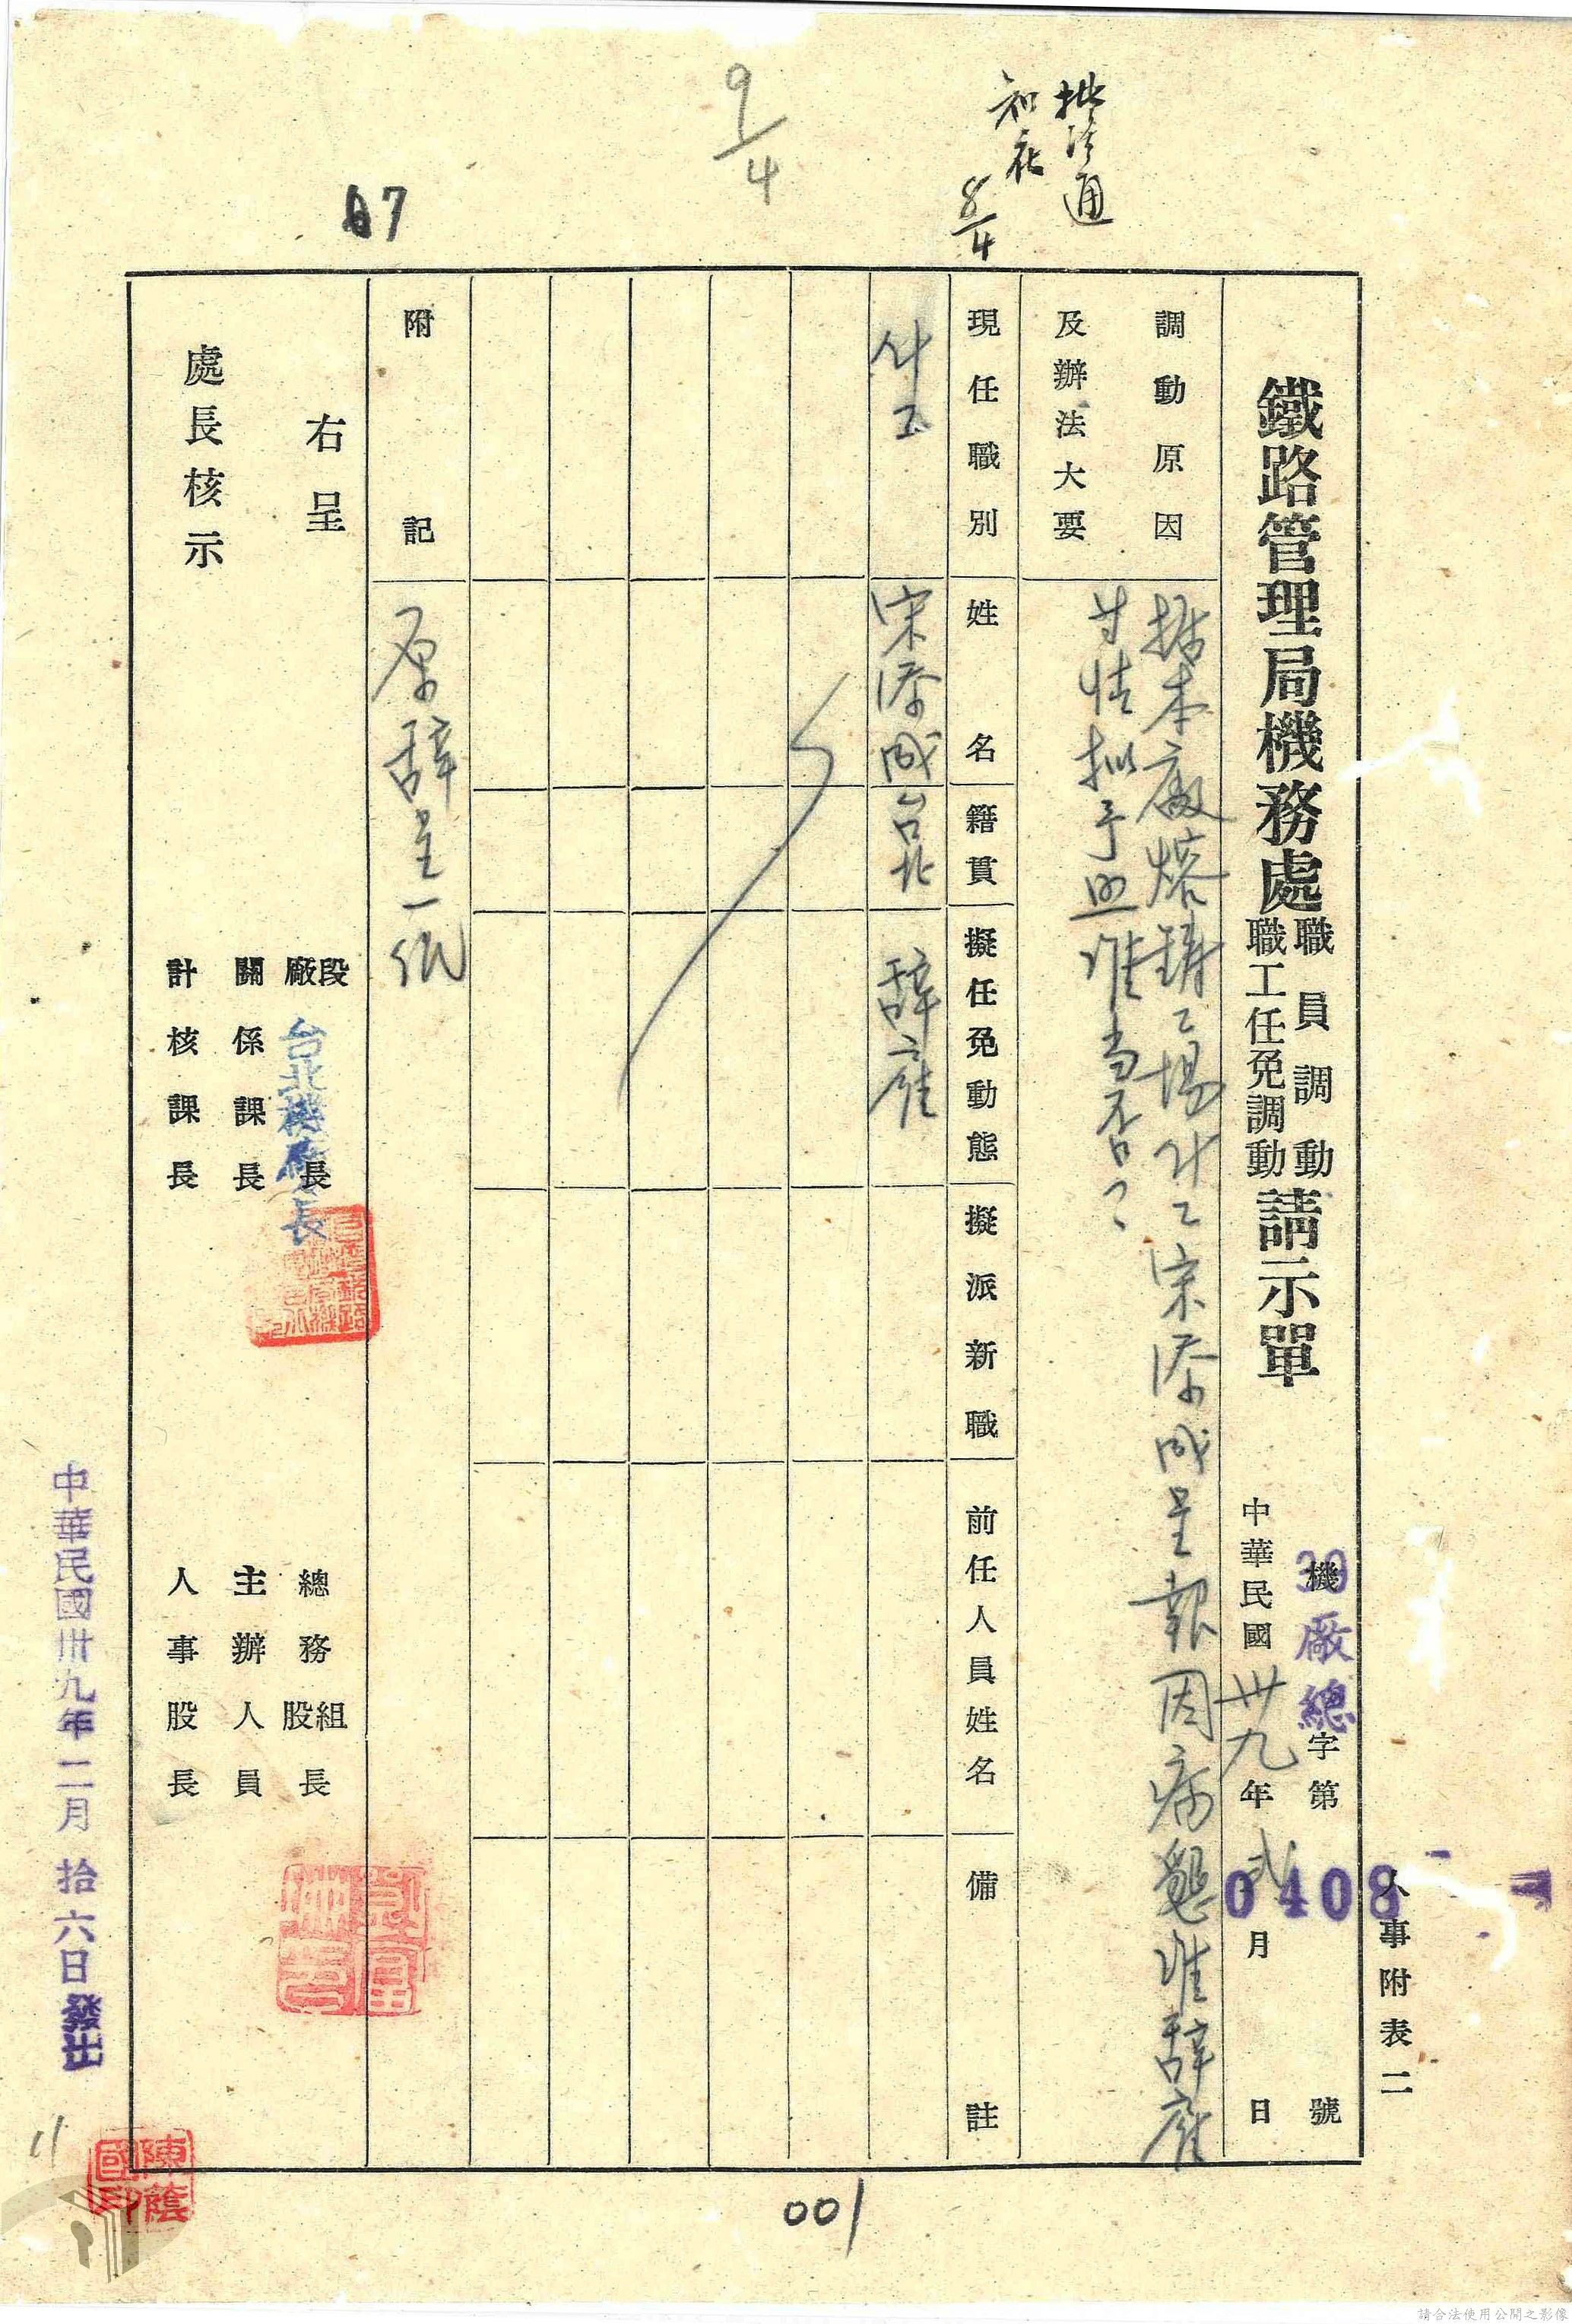 人事附表二
鐵路管理局機務處
職員調動
職工任免調動
請示單
機
39
廠總
字第
0408
號
中華民國卅九年弍月 日
調動原因
及辦法大要
據本廠熔鑄工場 工宋添成呈報因病懇准辭雇
等情拟予照准当否?
現任職別
姓名
籍貫
擬任免動態
擬派新職
前任人員姓名
備註
宋添成
台北
辞雇
附記
原辞呈一纸
右呈
處長核示
廠段長
台北機廠長
關係課長
計核課長
總務股組長
主辦人員
人事股長
中華民國卅九年二月拾六日發出
陳蔭國印
通
知
8/4
9/4
67
11
001
請合法使用公開之影像